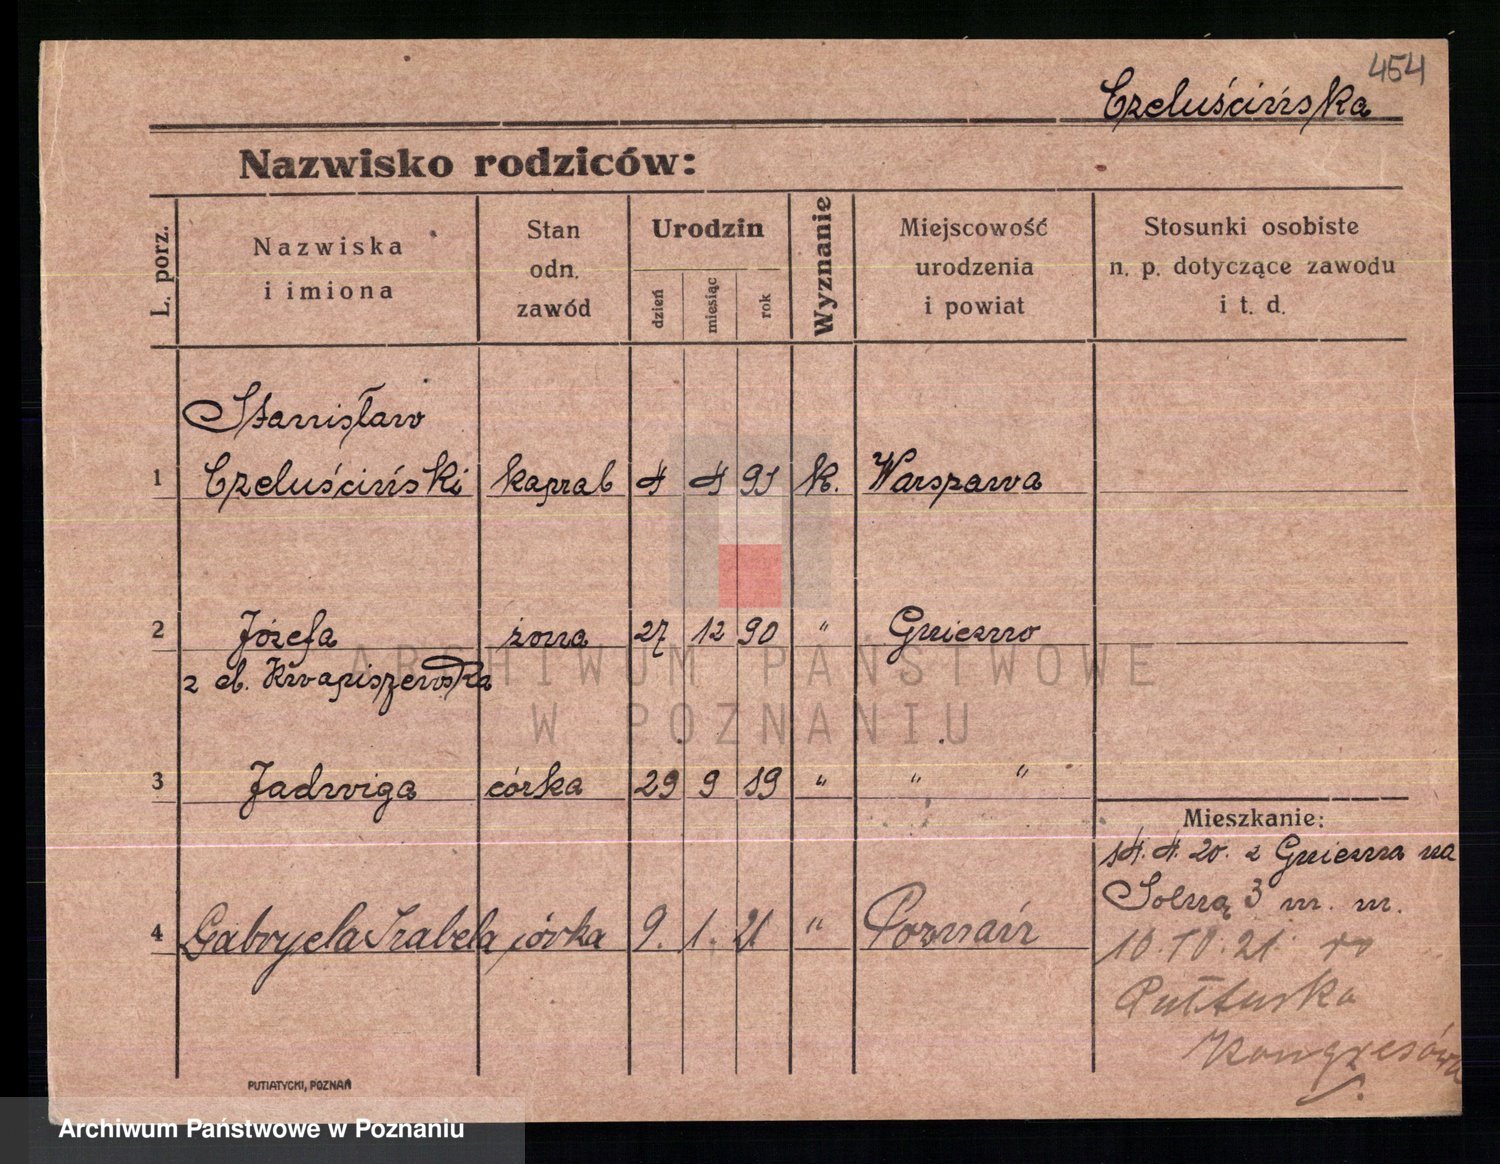 454
Czeluścińska
Nazwisko rodziców:
L. porz.
Nazwiska
i imiona
Stan
odn.
zawód
Urodzin
dzień
miesiąc
rok
Wyznanie
Miejscowość
urodzenia
i powiat
Stosunki osobiste
n. p. dotyczące zawodu
i t. d.
Stanisław
1 Czeluściński kapral 4 4 91 k. Warszawa
2 Józefa żona 27 12 90 " Gniezno
z d. Kwapiszewska
ARCHIWUM PAŃSTWOWE
W POZNANIU
3 Jadwiga córka 29 9 19 " " "
Mieszkanie:
14. 4. 20. z Gniezna na
Solną 3 m. m.
4 Gabryela Izabela córka 9. 1. 21 " Poznań
10. 10. 21
Pułtuska
Kongresówa
PUTIATYCKI, POZNAŃ
Archiwum Państwowe w Poznaniu